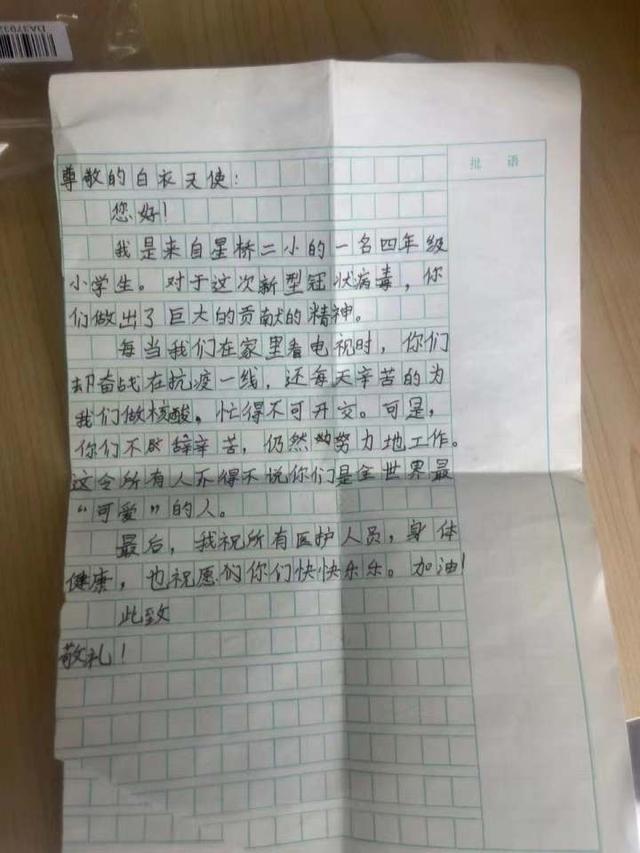 DA37932
批 语
尊敬的白衣天使：
您好！
我是来自星桥二小的一名四年级
小学生。对于这次新型冠状病毒，你
们做出了巨大的贡献的精神。
每当我们在家里看电视时，你们
却奋战在抗疫一线，还每天辛苦的为
我们做核酸，忙得不可开交。可是，
你们不辞辛苦，仍然努力地工作。
这令所有人不得不说你们是全世界最
“可爱”的人。
最后，我祝所有医护人员，身体
健康，也祝愿你们快快乐乐。加油！
此致
敬礼！